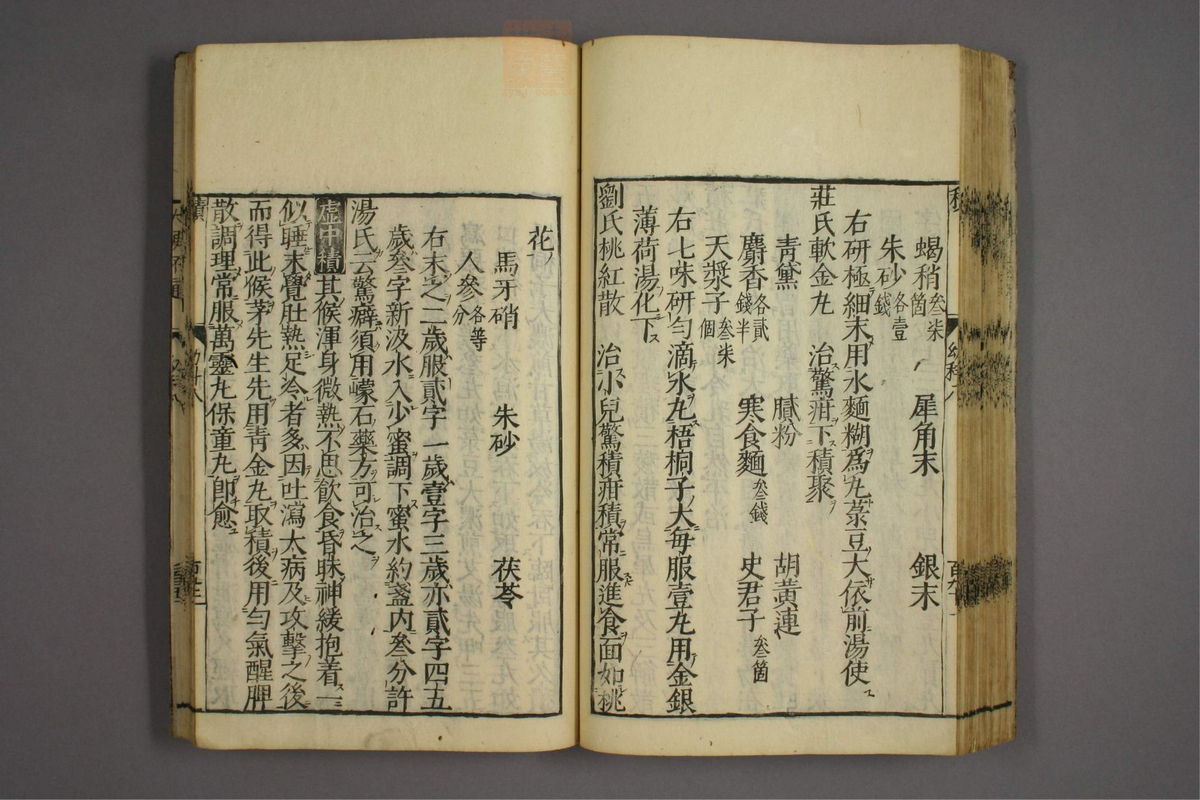 蝎稍叁柒箇 犀角末 銀末
朱砂各壹錢
右研極細末用水麵糊為丸菉豆大依前湯使
莊氏軟金丸 治驚疳下積聚
青黛 膩粉 胡黃連
麝香各貳錢半 寒食麵叁錢 史君子叁箇
天漿子叁柒個
右七味研勻滴水丸梧桐子大每服壹丸用金銀
薄荷湯化下
劉氏桃紅散 治小兒驚積疳積常服進食面如桃
花
馬牙硝 朱砂 茯苓
人參各等分
右末之二歲服貳字一歲壹字三歲亦貳字四五
歲叁字新汲水入少蜜調下蜜水約盞內叁分許
湯氏云驚癖須用礞石藥方可治之
虛中積其候渾身微熱不思飲食昏昧神緩抱着一
似睡未覺肚熱足冷者多因吐瀉太病及攻擊之後
而得此候茅先生先用青金丸取積後用勻氣醒脾
散調理常服萬靈丸保童丸即愈